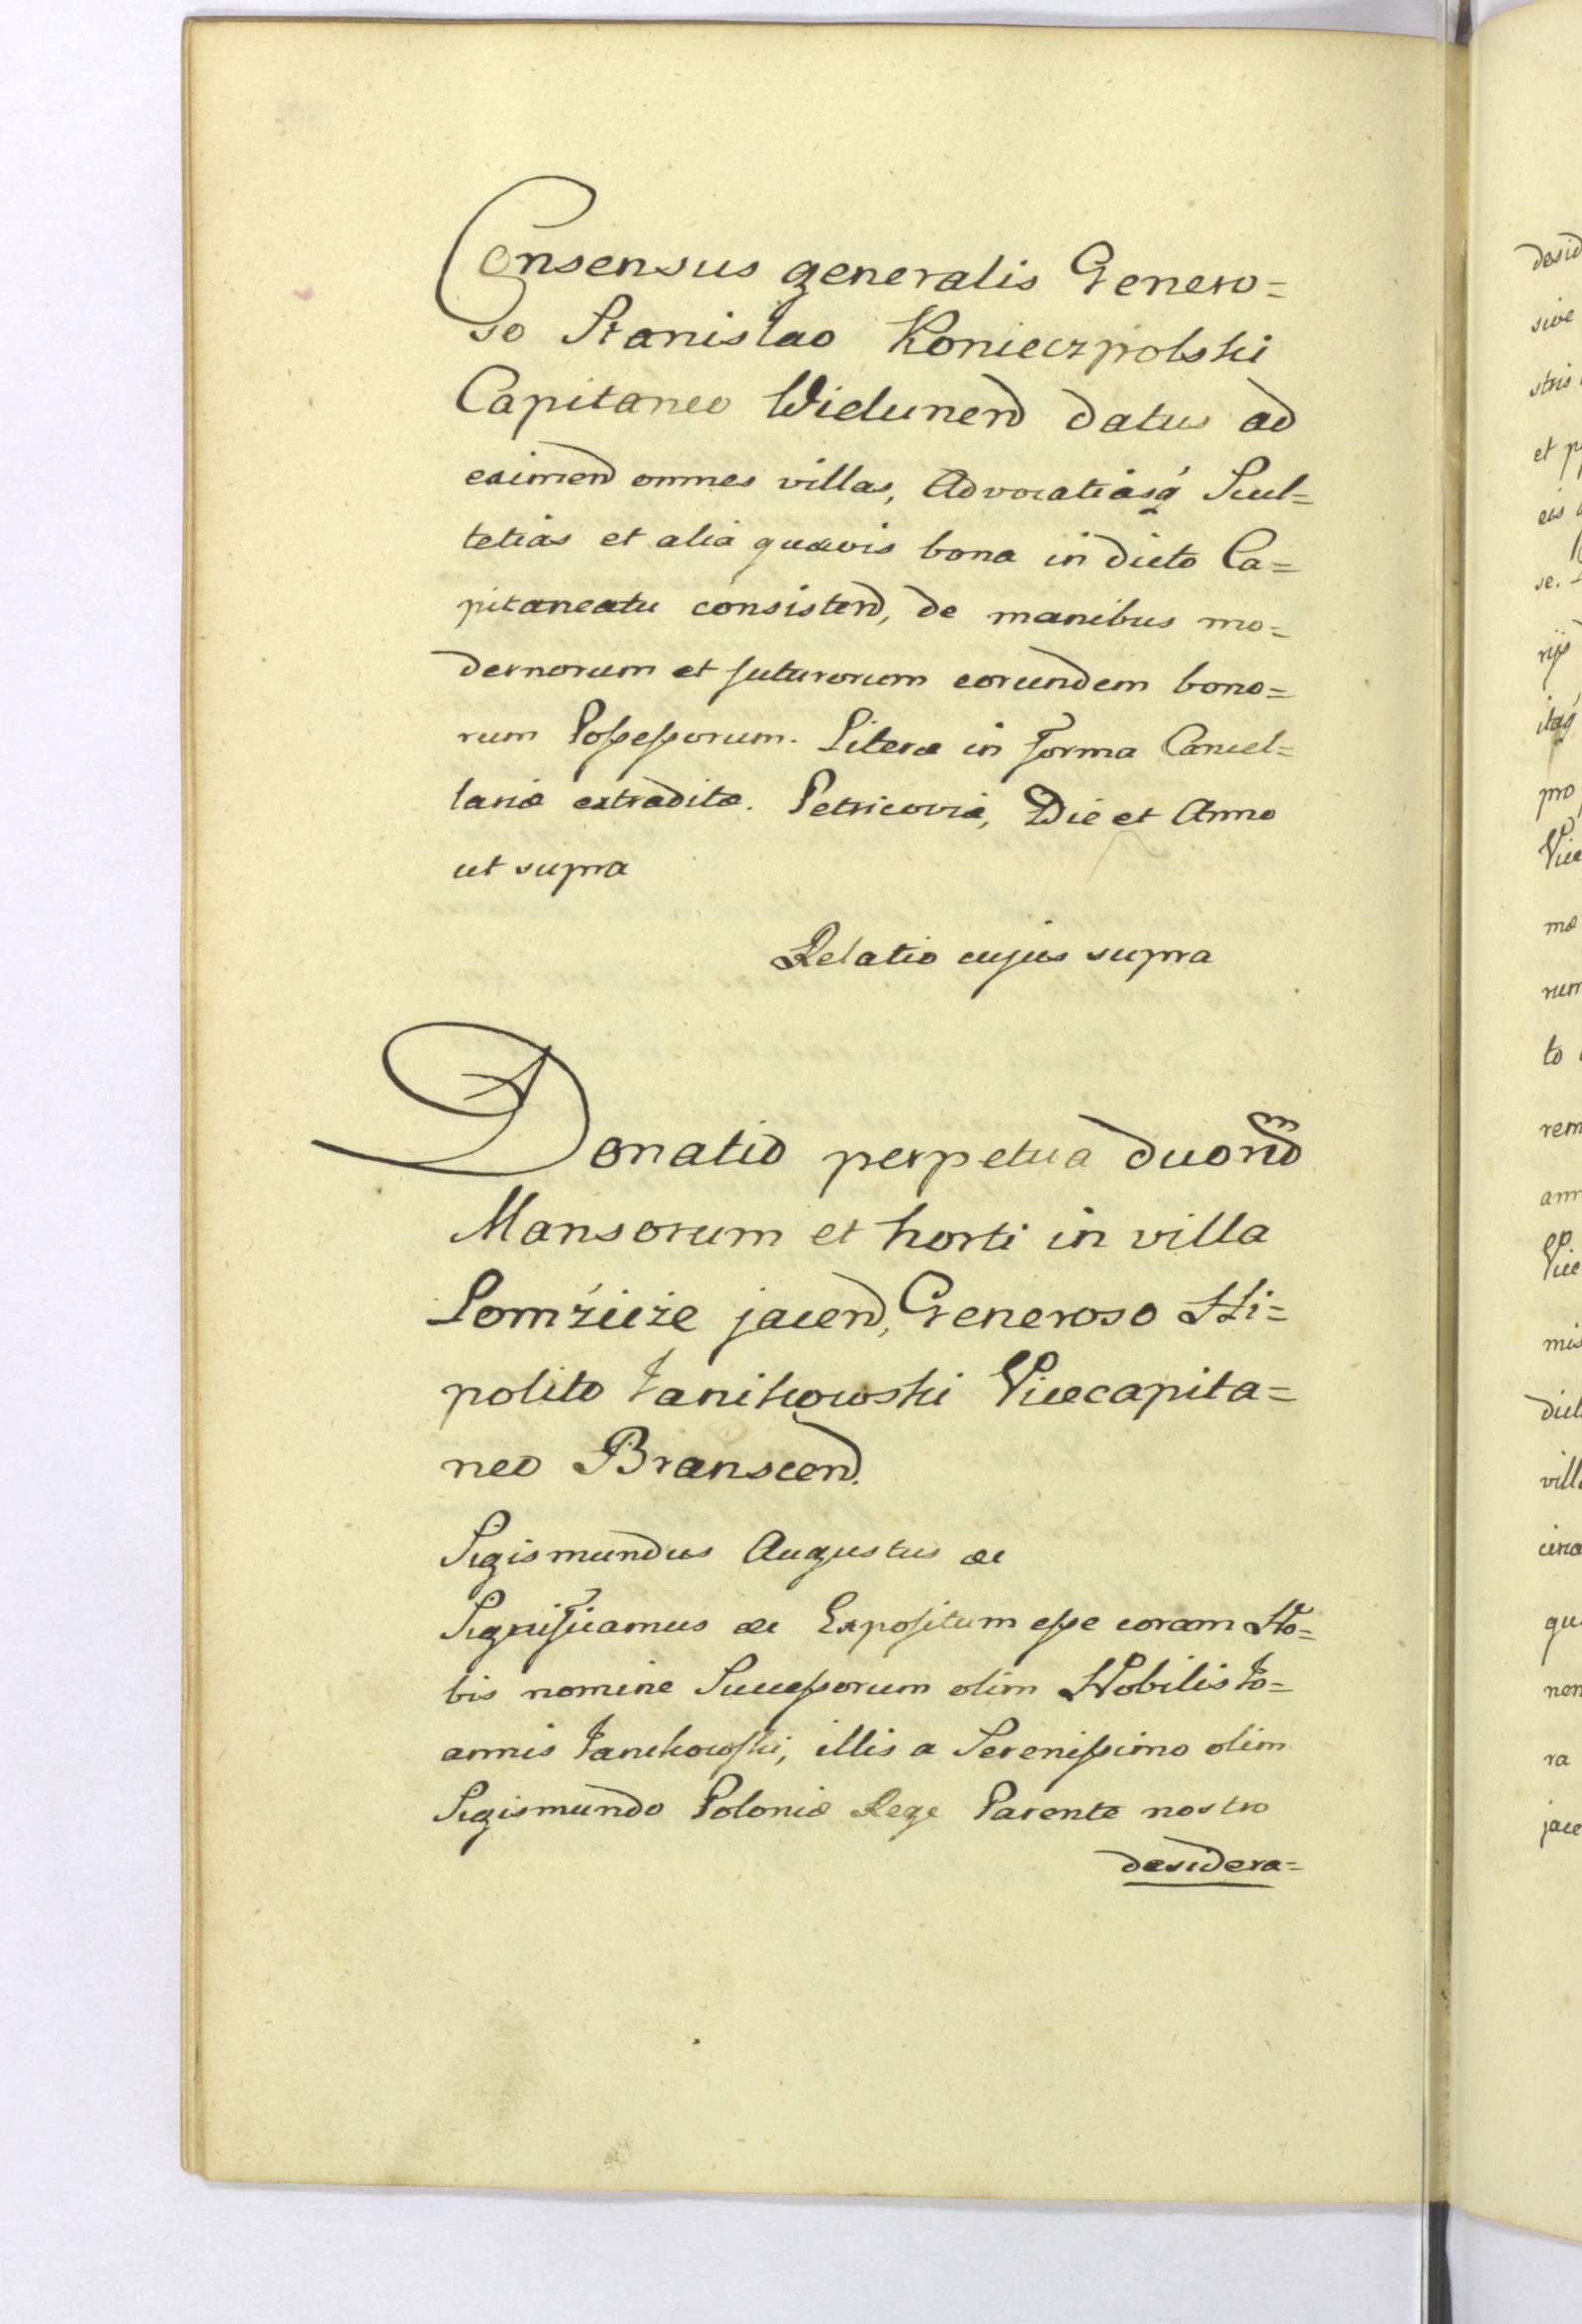 Consensus generalis Genero=
so Stanislao Konieczpolski
Capitaneo Wielunen datus ad
eximen omnes villas, Advocatiasq́ Scul=
tetias et alia quævis bona in dicto Ca=
pitaneatu consisten, de manibus mo=
dernorum et futurorum eorundem bono=
rum Poſseſsorum. Literæ in forma Cancel=
lariæ extraditæ. Petricoviæ, Die et Anno
ut supra
Relatio cujus supra
Donatio perpetua duorum
Mansorum et horti in villa
jacen, Generoso Hi=
polito Janikowski Vicecapita=
neo Branscen.
Sigismundus Augustus &c
Significamus &c Expoſitum eſse coram No=
bis nomine Succeſsorum olim Nobilis Jo=
annis Janikowſki, illis a Sereniſsimo olim
Sigismundo Poloniæ Rege Parente nostro
desidera=
desid
sive
stris
et p
eis
se.
rijs
itaq́
pro
Vice
mæ
rum
to
rem
ann
Vice
mis
dict
villa
circa
qu
nen
ra
jace